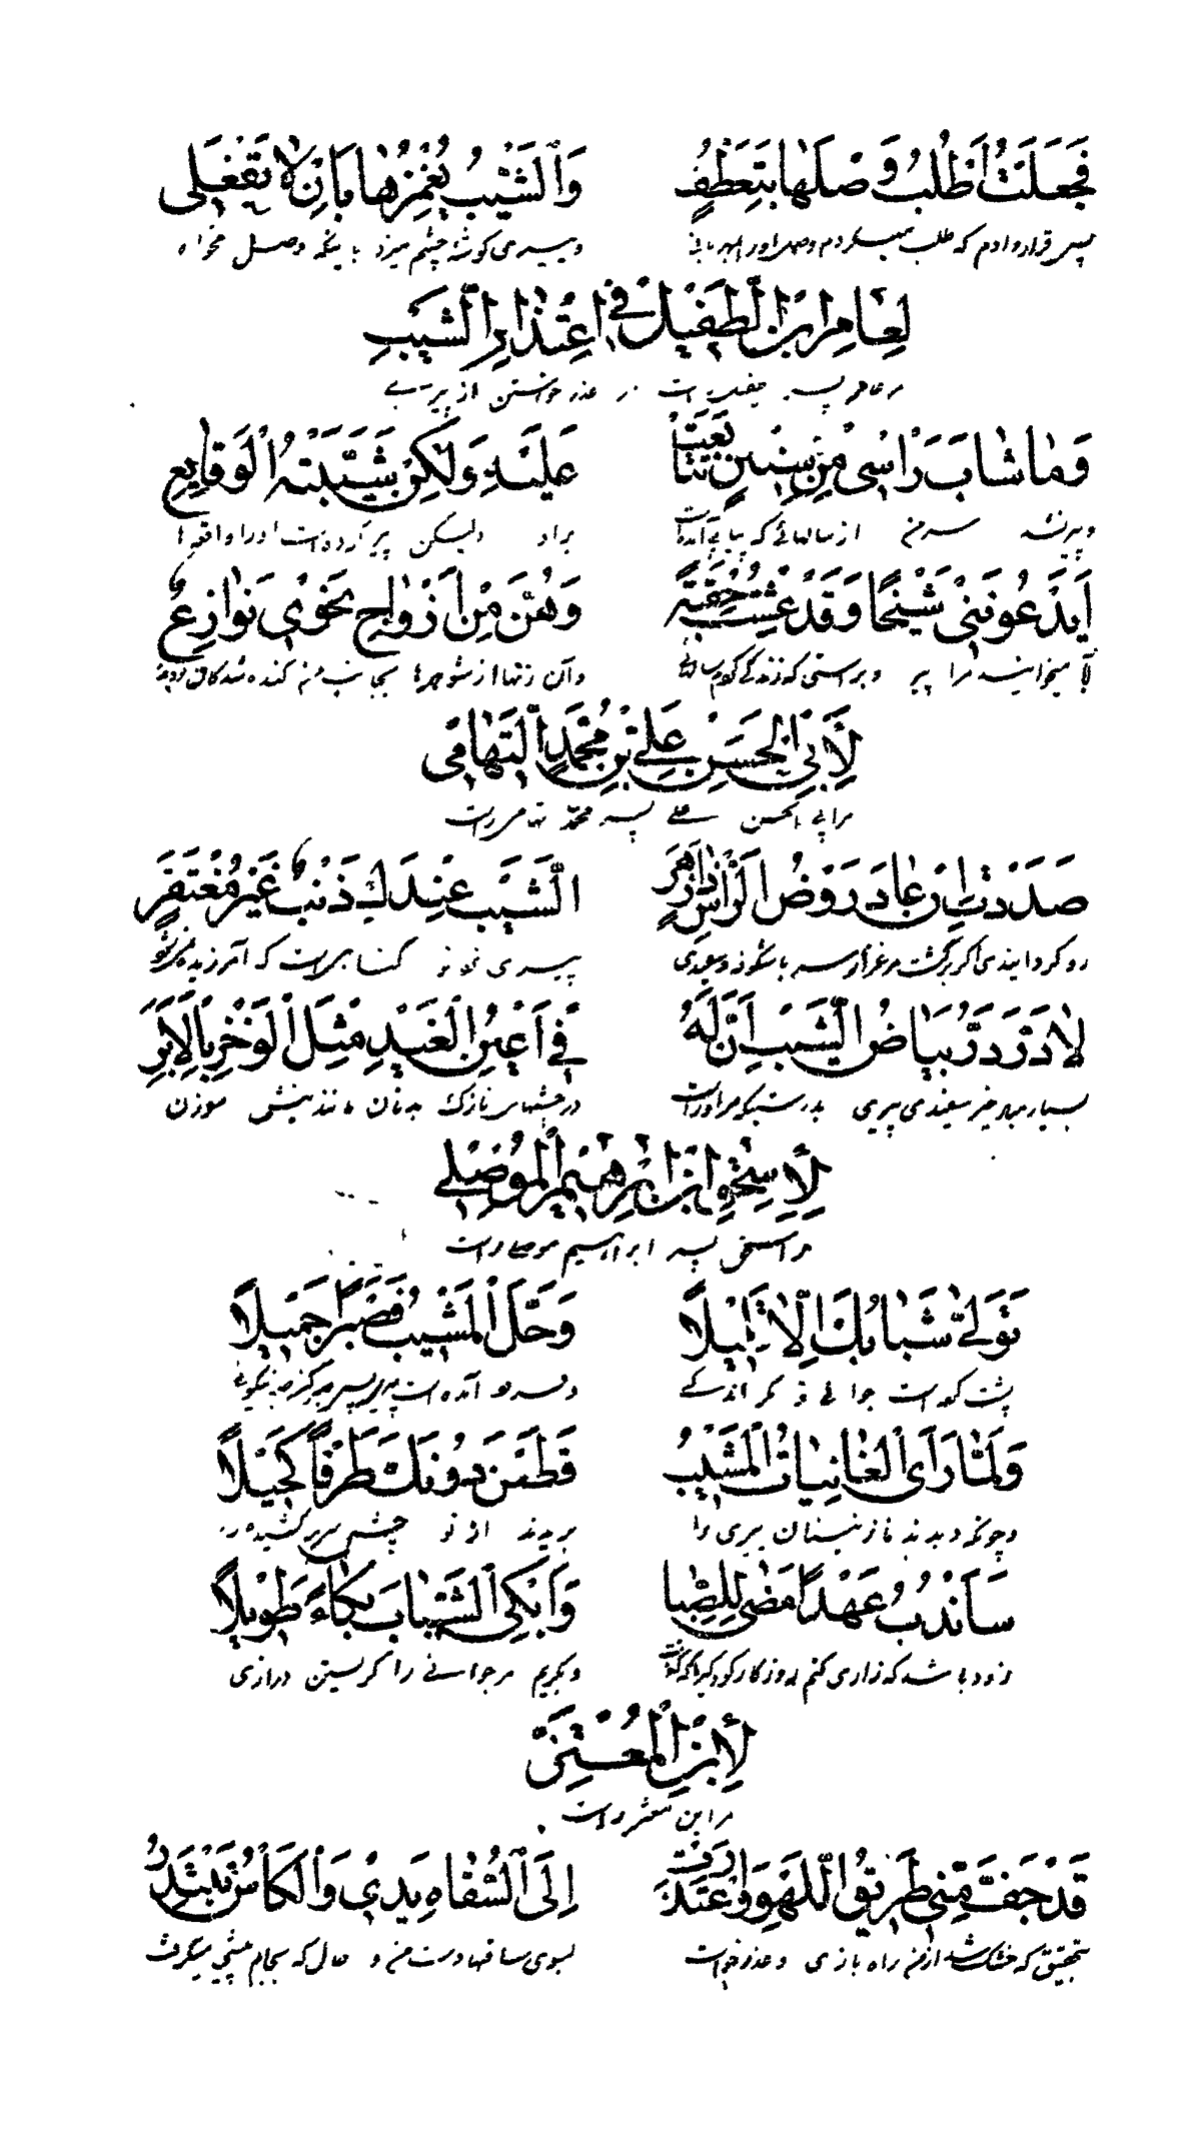 فَجَعَلَتُ اَطْلُبُ وَصْلَهٰا بِتَعَطُّفٍ وَالشَّيْبُ يَغْمِزُهٰا بِاَنْ لاٰ تَفْعَلى
پس قرار دادم که طلب میکردم وصل او را بمهربانی و پیری گوشه چشم میزد باینکه وصل مخواه
لِعٰامِرِ ابْنِ الطُّفَيْلِ فى اعْتِذٰارِ الشَّيْبِ
مر عامر پسر طفیل راست در عذر خواستن از پیری
وَمٰا شٰابَ رَاْسى مِنْ سِنينٍ تَتٰابَعَتْ عَلَيْهِ وَلٰكِنْ شَيَّبَتْهُ الْوَقٰايِعِ
و پیر نشد سر من از سالهائی که پیاپی آمده است براو ولیکن پیر کرده است او را واقعه‌ها
اَيَدْعُونَنى شَيْخًا وَقَدْ عِشْتُ حِقْبَةً وَهُنَّ مِنْ اَزْوٰاجٍ نَحْوى نَوٰازِعُ
آیا میخوانند مرا پیر و براستی که زندگی کردم سالها وآن زنها از شوهرها بجانب من کننده شدگان بودند
لِاَبِى الْحَسَنِ عَلِىِّ بْنِ مُحَمَّدٍ التَّهٰامى
مر ابی الحسن علی پسر محمد تهامی راست
صَدَدْتِ اِنْ عٰادَ رَوْضُ الرَّاْسِ ذٰا زَهَرٍ الشَّيْبُ عِنْدَكِ ذَنْبٌ غَيْرُ مُغْتَفَرٍ
رو گردانیدی اگر برگشت مرغزار سر با شکوفه و سفیدی پیری نزد تو گناهیست که آمرزیده نمیشود
لاٰ دَرَّ دَرُّ بَيٰاضُ الشَّيْبِ اِنَّ لَهُ فى اَعْيُنِ الْغيدِ مِثْلَ الْوَخْزِ بِالْاِبَرِ
بسیار مباد خیر سفیدی پیری بدرستیکه مر او راست در چشمهای نازک بدنان مانند نیش سوزن
لِاِسْحٰقِ ابْنِ ابْرٰهيمِ الْمَوْصِلى
مر اسحق پسر ابراهیم موصلی راست
تَوَلّٰى شَبٰابُكَ اِلاّٰ قَليلاً وَحَلَّ الْمَشيبُ فَصَبْراً جَميلاً
پشت کرده است جوانی تو مگر اندکی و فرود آمده است پیری پس صبر کن صبر نیکوئی
وَلَمّٰا رَاَى الْغٰانِيٰاتُ الْمَشيبَ قَطَعْنَ دُونَكَ طَرْفاً كَحيلاً
و چونکه دیدند نازنینان پیری را بریدند از تو چشم سرمه کشیده را
سَاَنْدُبُ عَهْداً مَضٰى لِلصِّبٰا وَاَبْكِى الشَّبٰابَ بُكٰاءً طَويلاً
زود باشد که زاری کنم روزگار کودکی را که گذشت و بگریم مر جوانی را گریستن درازی
لِاِبْنِ الْمُعْتَزِّ
مر ابن معتز راست
قَدْ جَفَّ مِنّى طَريقُ اللَّهْوِ وَاعْتَذَرَتْ اِلَى السُّقٰاهِ يَدى وَالْكَاْسُ تَبْتَدِرُ
بتحقیق که خشک شد از من راه بازی و عذر خواست بسوی ساقیها دست من و حال که جام پیشی میگرفت